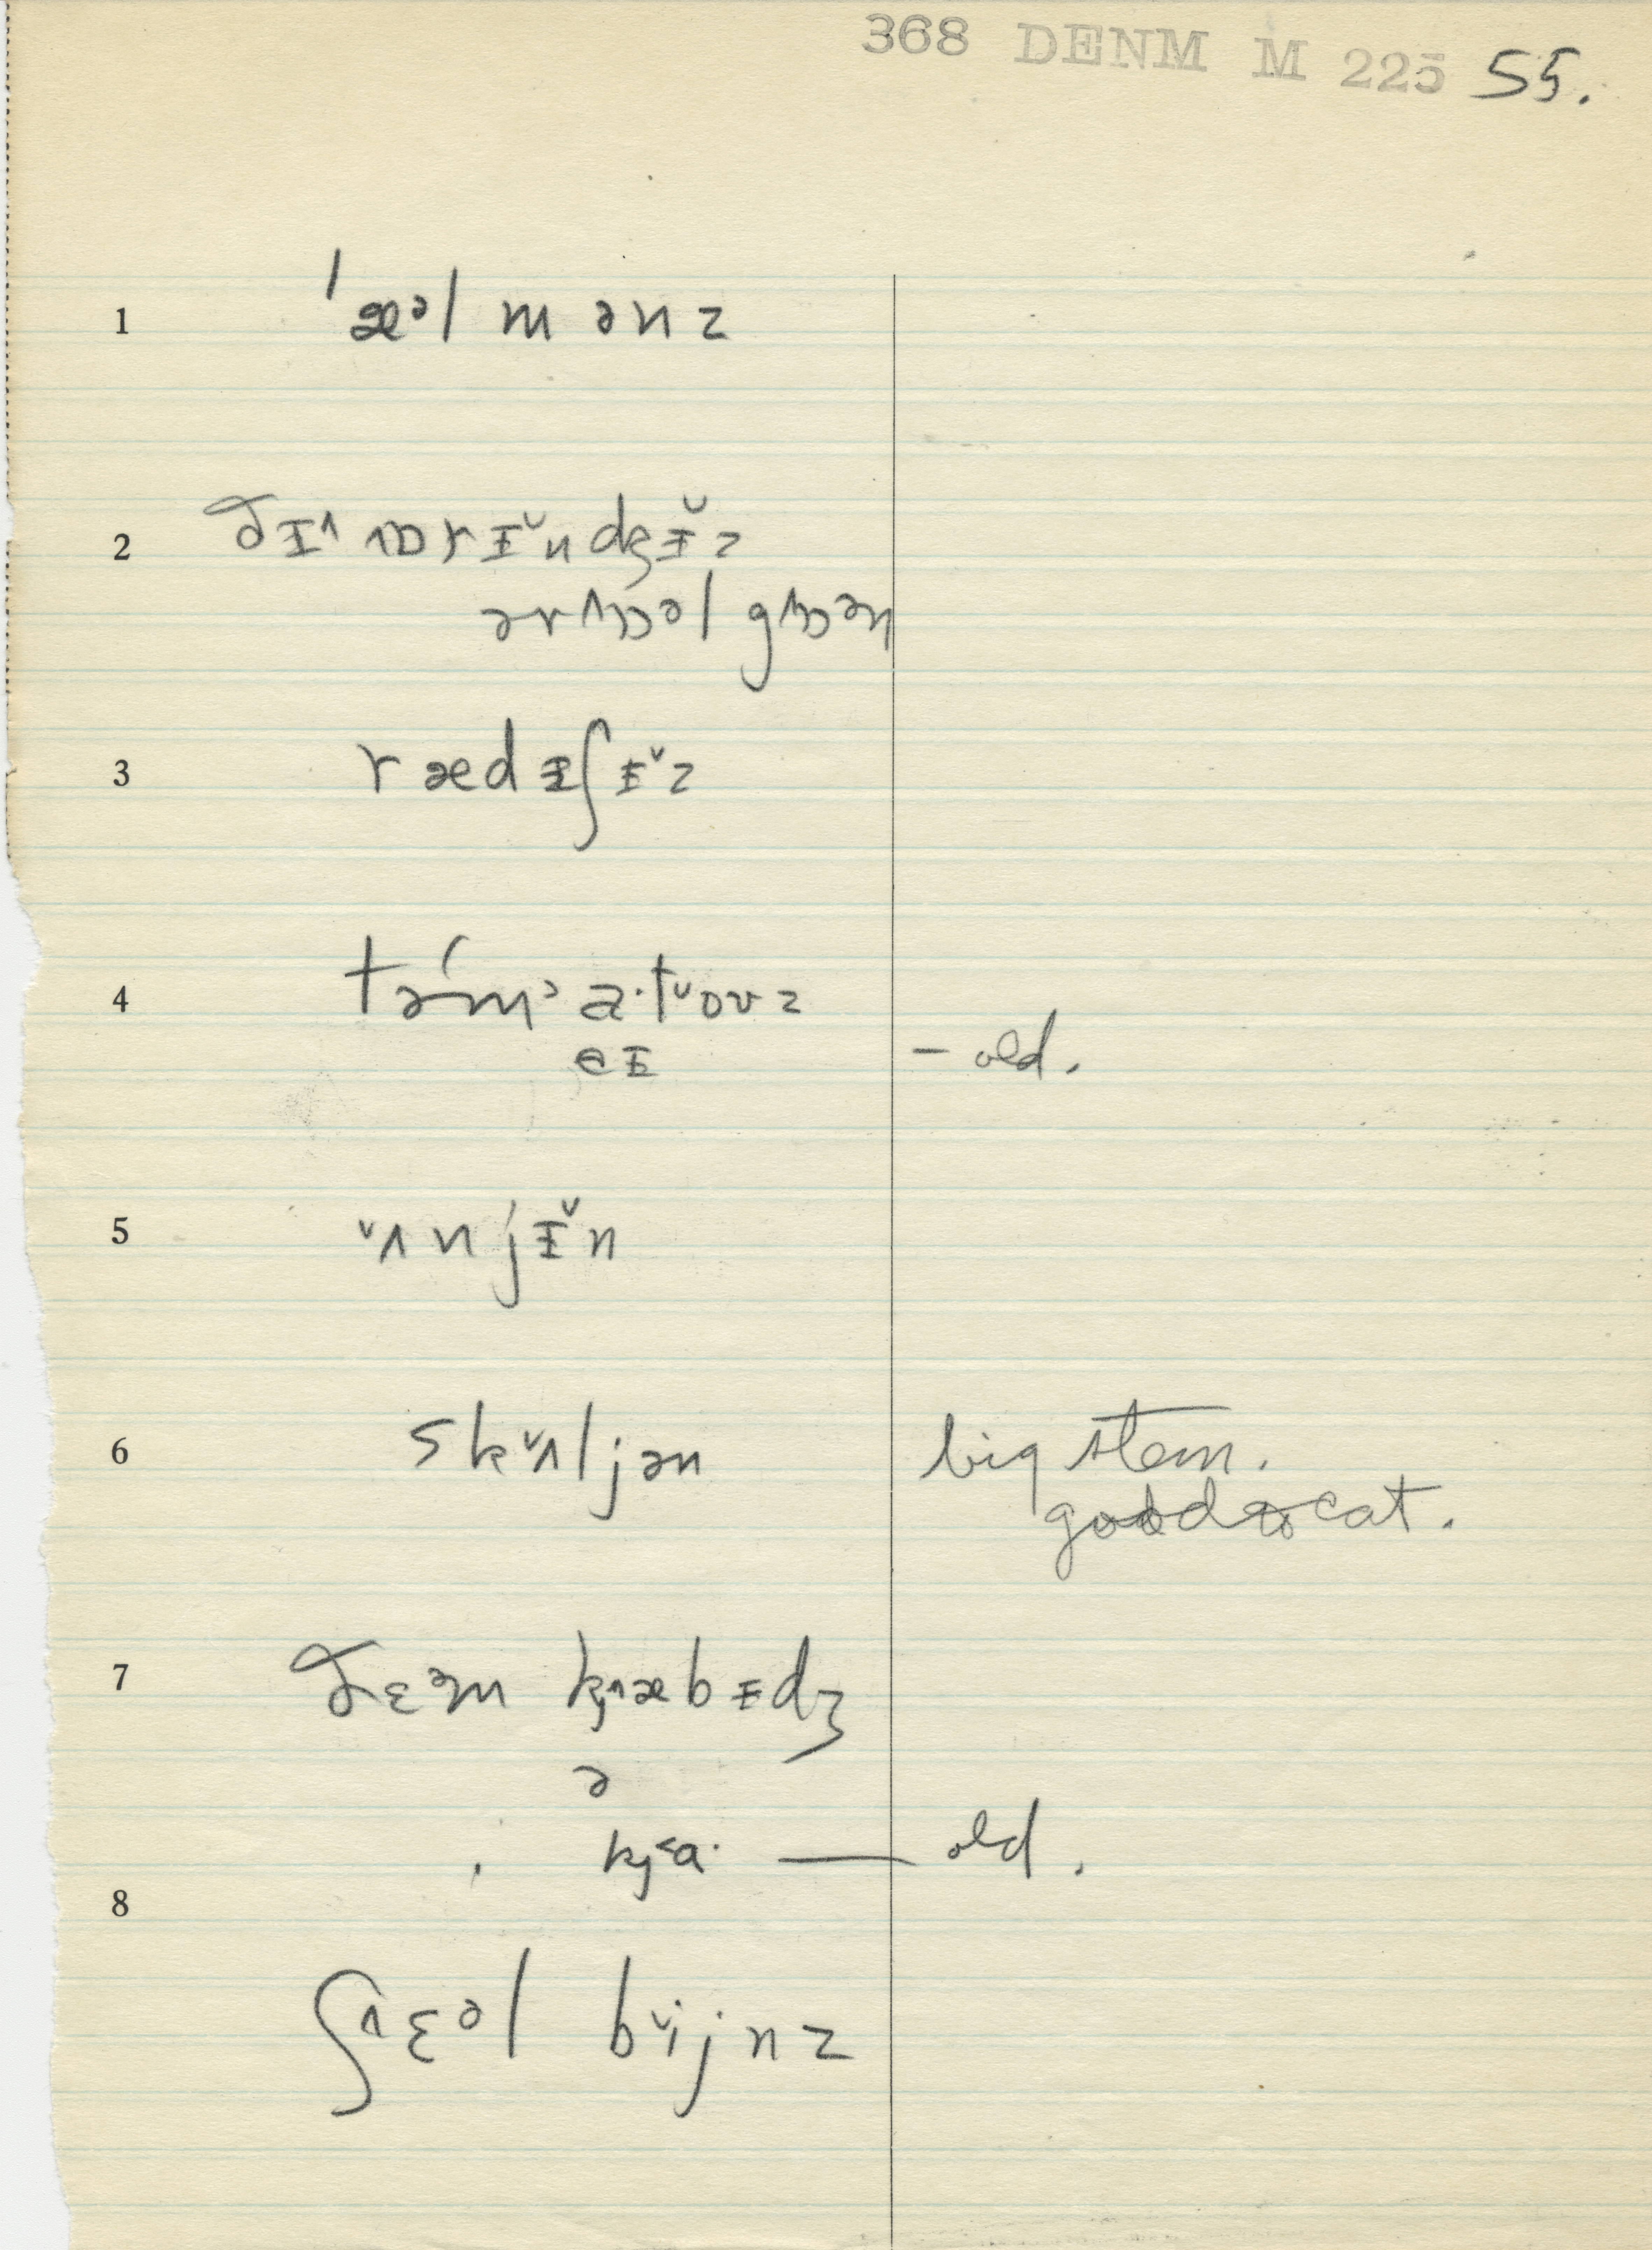 368 DENM M 225 55.
1 ˈæᵊl mənz
2 ðɪ˄ ɒrɪ˅ndʒɪ˅z
ər˄ɒᵊl g˄ɒᵊn
3 rædɪʃɪ˅z
4 təḿᵊ a·t˅oʊz
eɪ – old.
5 ˅ʌnjɪ́˅n
6 sk˅ʌljən big stem.
good to eat.
7 ðɛᵊm kj˄æbɪdʒ
ə
kj˂a· — old.
8
ʃ˄ɛᵊl b˅ijnz